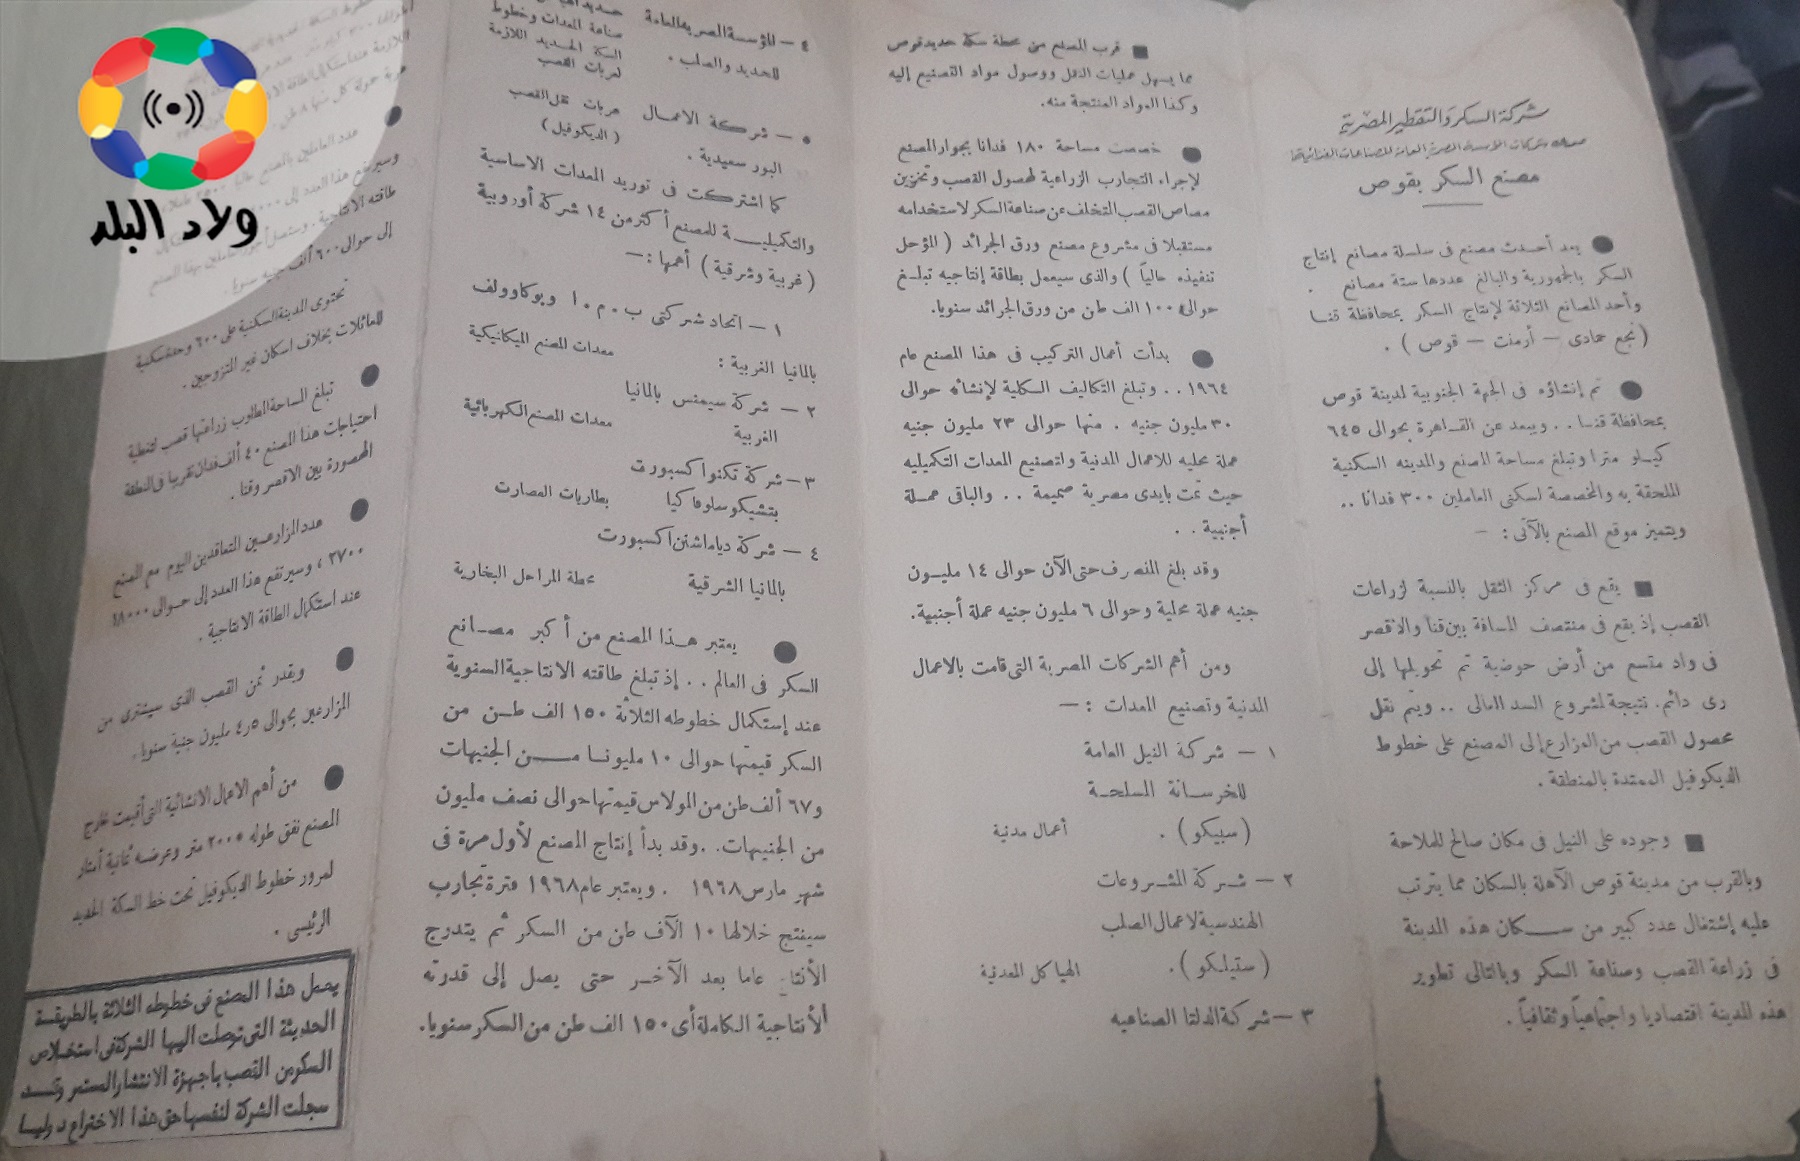 شركة السكر والتقطير المصرية
مصنع السكر بقوص
يعد أحدث مصنع في سلسلة مصانع إنتاج
السكر بالجمهورية والبالغ عددها ستة مصانع .
وأحد المصانع الثلاثة لإنتاج السكر بمحافظة قنا
( نجع حمادى — أرمنت — قوص ) .
تم إنشاؤه فى الجهة الجنوبية لمدينة قوص
بمحافظة قنا . . ويبعد عن القاهرة بحوالى ٦٤٥
كيلو مترا وتبلغ مساحة المصنع والمدينه السكنية
الملحقة به والمخصصة لسكنى العاملين ٣٠٠ فدانا . .
ويتميز موقع المصنع بالآتى : —
يقع فى مركز الثقل بالنسبة لزراعات
القصب إذ يقع فى منتصف المسافة بين قنا والأقصر
فى واد متسع من أرض حوضية تم تحويلها إلى
رى دائم. نتيجة لمشروع السد العالى . . ويتم نقل
محصول القصب من المزارع إلى المصنع على خطوط
الديكوفيل الممتدة بالمنطقة .
وجوده على النيل فى مكان صالح للملاحة
وبالقرب من مدينة قوص الآهلة بالسكان مما يترتب
عليه إشتغال عدد كبير من سكان هذه المدينة
فى زراعة القصب وصناعة السكر وبالتالى تطوير
هذه المدينة اقتصاديا واجتماعياً وثقافياً .
قرب المصنع من محطة سكة حديد قوص
مما يسهل عمليات النقل ووصول مواد التصنيع إليه
وكذا المواد المنتجة منه.
خصصت مساحة ١٨٠ فدانا بجوار المصنع
لإجراء التجارب الزراعية لمحصول القصب وتخزين
مصاص القصب المتخلف عن صناعة السكر لاستخدامه
مستقبلا فى مشروع مصنع ورق الجرائد ( المؤجل
تنفيذه حالياً ) والذى سيعمل بطاقة إنتاجيه تبلغ
حوالى ١٠٠ الف طن من ورق الجرائد سنويا.
بدأت أعمال التركيب فى هذا المصنع عام
١٩٦٤ . . وتبلغ التكاليف الكلية لإنشائه حوالى
٣٠ مليون جنيه . منها حوالى ٢٣ مليون جنيه
عملة محليه للاعمال المدنية ولتصنيع المعدات التكميليه
حيث تمت بايدى مصرية صميمة . . والباقى عملة
أجنبية . .
وقد بلغ المنصرف حتى الآن حوالى ١٤ مليون
جنيه عملة محلية وحوالى ٦ مليون جنيه عملة أجنبية.
ومن أهم الشركات المصرية التى قامت بالاعمال
المدنية وتصنيع المعدات : —
١ — شركة النيل العامة
للخرسانة المسلحة
( سبيكو ) . أعمال مدنية
٢ — شركة المشروعات
الهندسية لاعمال الصلب
( ستيلكو ) . الهياكل المعدنية
٣ — شركة الدلتا الصناعيه
٤ — المؤسسة المصرية العامة
للحديد والصلب .
صناعة المعدات وخطوط
السكة الحديد اللازمة
لعربات القصب
٥ — شركة الاعمال عربات نقل القصب
البور سعيدية . ( الديكوفيل )
كما اشتركت فى توريد المعدات الاساسية
والتكميلية للمصنع أكثر من ١٤ شركة أوروبية
( غربية وشرقية ) أهمها : —
١ — اتحاد شركتى ب . م . ا وبوكاوولف
بالمانيا الغربية : معدات المصنع الميكانيكية
٢ — شركة سيمنس بالمانيا
الغربية معدات المصنع الكهربائية
٣ — شركة تكنوا كسبورت
بتشيكوسلوفاكيا بطاريات العصارت
٤ — شركة دياماشنن اكسبورت
بالمانيا الشرقية محطة المراجل البخارية
يعتبر هذا المصنع من أكبر مصانع
السكر فى العالم . . إذ تبلغ طاقته الانتاجية السنوية
عند إستكمال خطوطه الثلاثة ١٥٠ الف طن من
السكر قيمتها حوالى ١٠ مليونا من الجنيهات
و ٦٧ ألف طن من المولاس قيمتها حوالى نصف مليون
من الجنيهات. . وقد بدأ إنتاج المصنع لأول مرة فى
شهر مارس ١٩٦٨ . ويعتبر عام ١٩٦٨ فترة تجارب
سينتج خلالها ١٠ الآف طن من السكر ثم يتدرج
الأنتاج عاما بعد الآخر حتى يصل إلى قدرته
الأنتاجية الكاملة أى ١٥٠ الف طن من السكر سنويا.
عدد العاملين بالمصنع حاليا
وسيرتفع هذا العدد إلى
إلى حوالى ٦٠٠ ألف جنيه سنويا .
تحتوى المدينة السكنية على ٦٠٠ وحدة سكنية
للعائلات بخلاف اسكان غير المتزوجين .
تبلغ المساحة المطلوب زراعتها قصب لتغطية
احتياجات هذا المصنع ٤٠ ألف فدان تقريبا فى المنطقة
المحصورة بين الاقصر وقنا .
عدد المزارعين المتعاقدين اليوم مع المصنع
٢٧٠٠ ، وسيرتفع هذا العدد إلى حوالى ١٨٠٠٠
عند استكمال الطاقة الانتاجية .
ويقدر ثمن القصب الذى سيشترى من
المزارعين بحوالى ٤٫٥ مليون جنية سنويا .
من أهم الاعمال الانشائية التى أقيمت خارج
المصنع نفق طوله ٢٠٠٥ متر وعرضه ثمانية أمتار
لمرور خطوط الديكوفيل تحت خط السكة الحديد
الرئيسى .
يعمل هذا المصنع فى خطوطه الثلاثة بالطريقة
الحديثة التى توصلت اليها الشركة فى استخلاص
السكر من القصب باجهزة الانتشار المستمر وقد
سجلت الشركة لنفسها حق هذا الاختراع دوليا
ولاد البلد